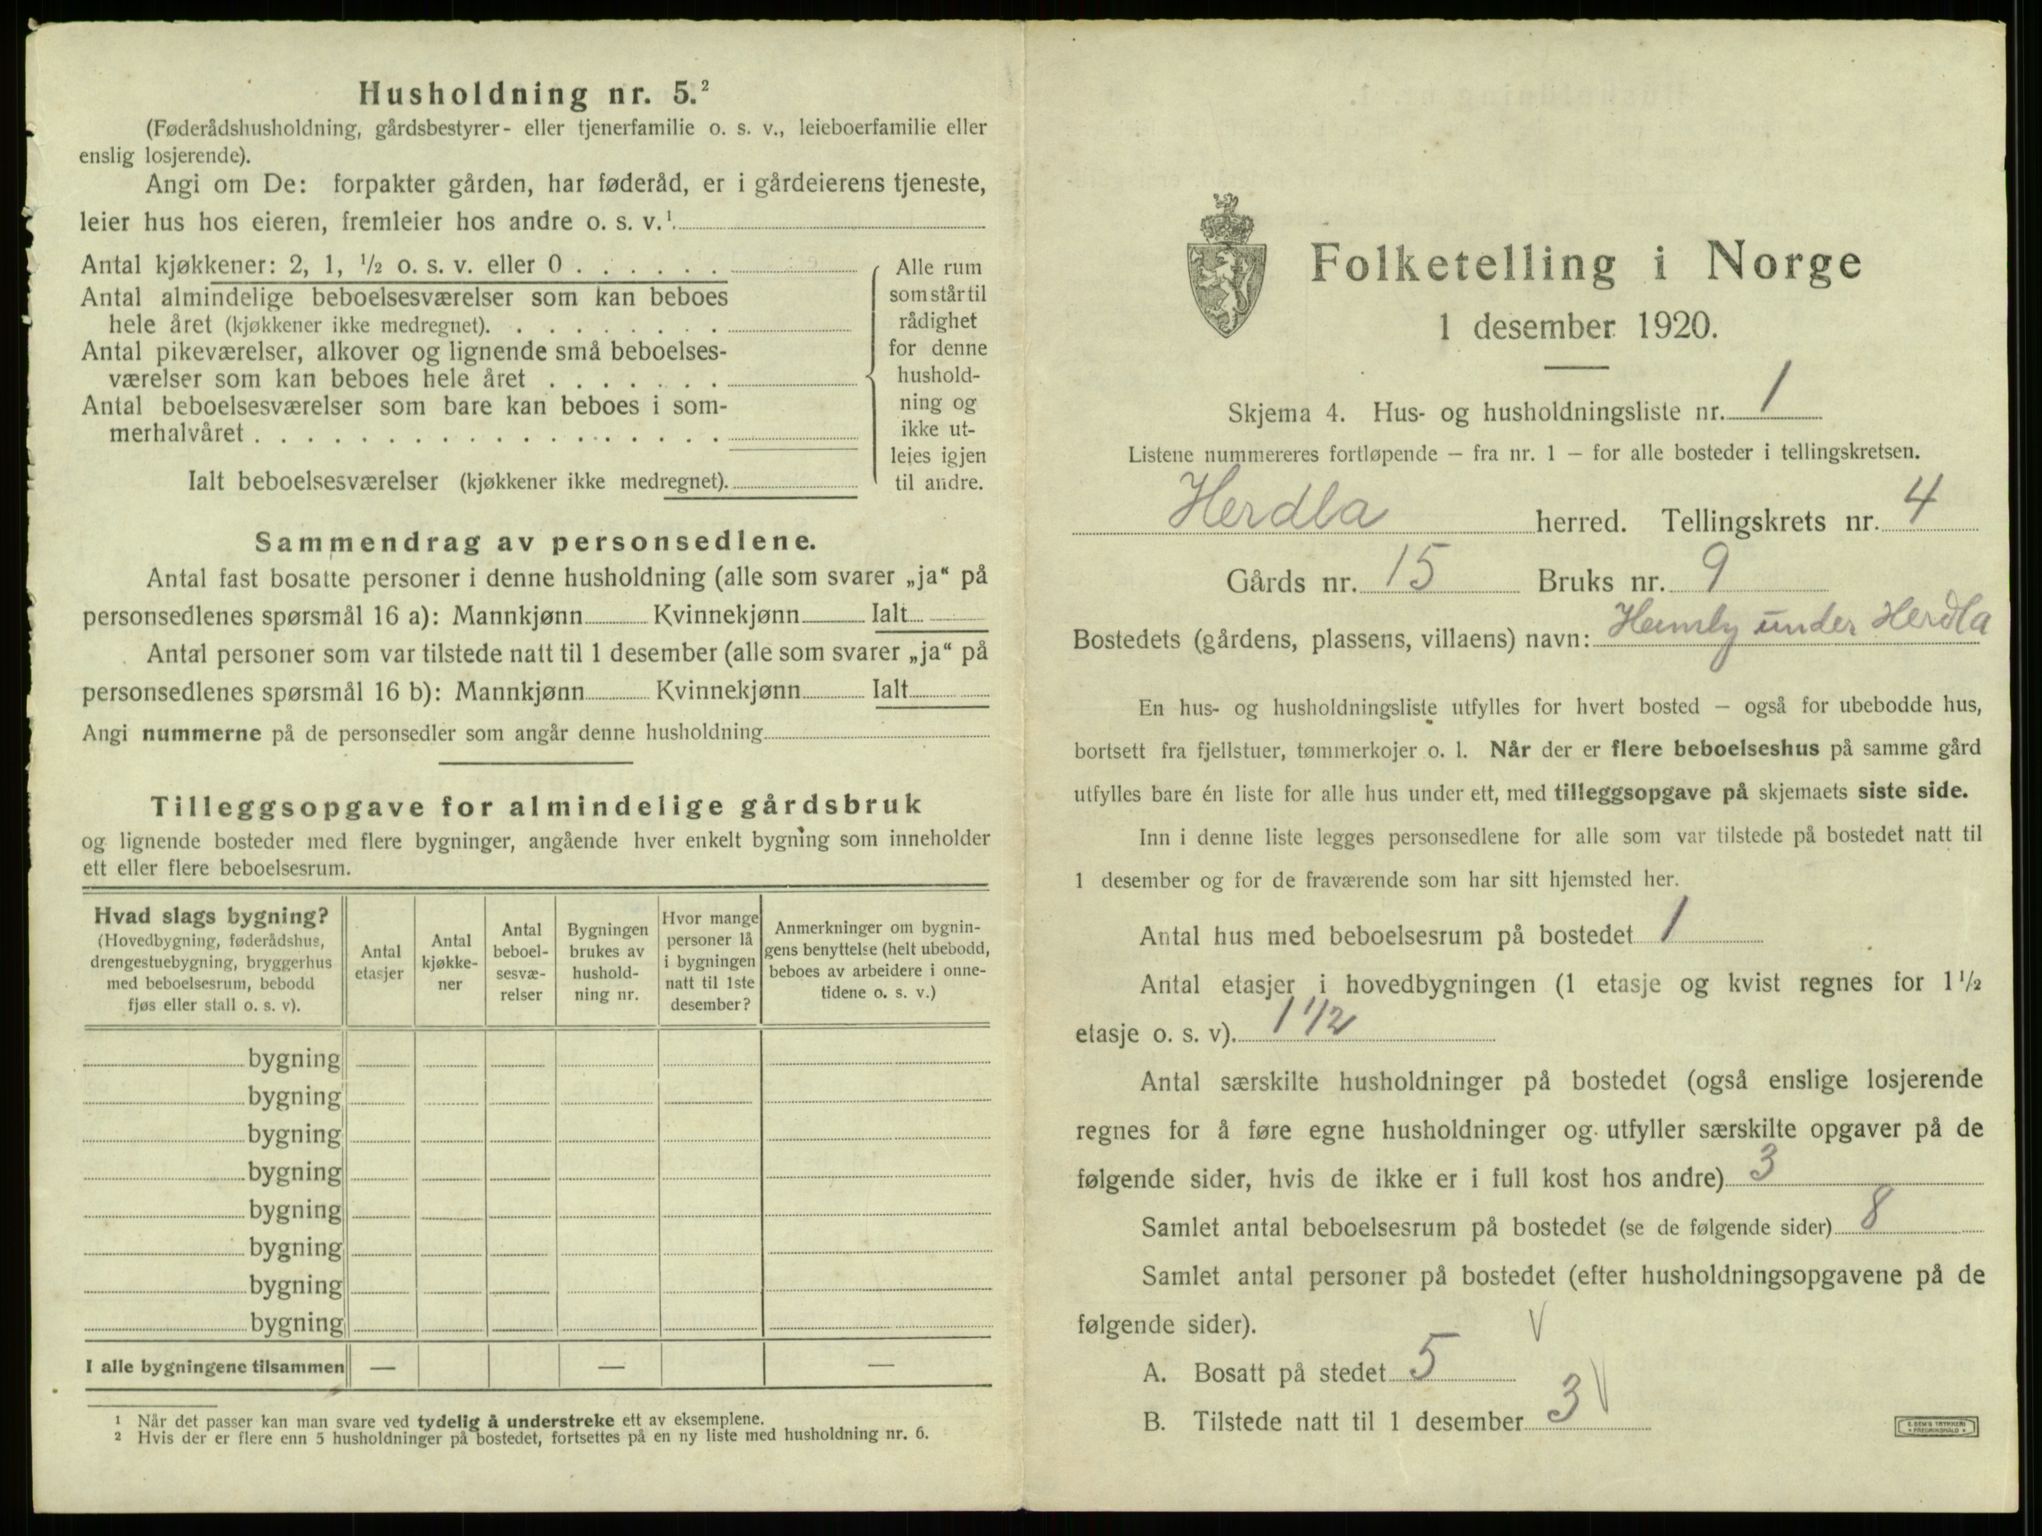 Husholdning nr. 5.²
(Føderådshusholdning, gårdsbestyrer- eller tjenerfamilie o. s. v., leieboerfamilie eller
enslig losjerende).
Angi om De: forpakter gården, har føderåd, er i gårdeierens tjeneste,
leier hus hos eieren, fremleier hos andre o. s. v.¹
Antal kjøkkener: 2, 1, ½ o. s. v. eller 0 . . . . . .
Antal almindelige beboelsesværelser som kan beboes
hele året (kjøkkener ikke medregnet). . . . . . . . .
Antal pikeværelser, alkover og lignende små beboelses-
værelser som kan beboes hele året . . . . . . .
Antal beboelsesværelser som bare kan beboes i som-
merhalvåret . . . . . . . . . . . . . . . . . .
Ialt beboelsesværelser (kjøkkener ikke medregnet).
Alle rum
som står til
rådighet
for denne
hushold-
ning og
ikke ut-
leies igjen
til andre.
Sammendrag av personsedlene.
Antal fast bosatte personer i denne husholdning (alle som svarer „ja“ på
personsedlenes spørsmål 16 a): Mannkjønn Kvinnekjønn Ialt
Antal personer som var tilstede natt til 1 desember (alle som svarer „ja“ på
personsedlenes spørsmål 16 b): Mannkjønn Kvinnekjønn Ialt
Angi nummerne på de personsedler som angår denne husholdning
Tilleggsopgave for almindelige gårdsbruk
og lignende bosteder med flere bygninger, angående hver enkelt bygning som inneholder
ett eller flere beboelsesrum.
Hvad slags bygning?
(Hovedbygning, føderådshus,
drengestuebygning, bryggerhus
med beboelsesrum, bebodd
fjøs eller stall o. s. v).
Antal
etasjer
Antal
kjøkke-
ner
Antal
beboel-
sesvæ-
relser
Bygningen
brukes av
hushold-
ning nr.
Hvor mange
personer lå
i bygningen
natt til 1ste
desember?
Anmerkninger om bygnin-
gens benyttelse (helt ubebodd,
beboes av arbeidere i onne-
tidene o. s. v.)
bygning
bygning
bygning
bygning
bygning
bygning
bygning
bygning
I alle bygningene tilsammen — — —
¹ Når det passer kan man svare ved tydelig å understreke ett av eksemplene.
² Hvis der er flere enn 5 husholdninger på bostedet, fortsettes på en ny liste med husholdning nr. 6.
Folketelling i Norge
1 desember 1920.
Skjema 4. Hus- og husholdningsliste nr. 1
Listene nummereres fortløpende – fra nr. 1 – for alle bosteder i tellingskretsen.
Herdla herred. Tellingskrets nr. 4
Gårds nr. 15 Bruks nr. 9
Bostedets (gårdens, plassens, villaens) navn: under Herdla
En hus- og husholdningsliste utfylles for hvert bosted – også for ubebodde hus,
bortsett fra fjellstuer, tømmerkojer o. l. Når der er flere beboelseshus på samme gård
utfylles bare én liste for alle hus under ett, med tilleggsopgave på skjemaets siste side.
Inn i denne liste legges personsedlene for alle som var tilstede på bostedet natt til
1 desember og for de fraværende som har sitt hjemsted her.
Antal hus med beboelsesrum på bostedet 1
Antal etasjer i hovedbygningen (1 etasje og kvist regnes for 1½
etasje o. s. v). 1 1/2
Antal særskilte husholdninger på bostedet (også enslige losjerende
regnes for å føre egne husholdninger og utfyller særskilte opgaver på de
følgende sider, hvis de ikke er i full kost hos andre) 3
Samlet antal beboelsesrum på bostedet (se de følgende sider) 8
Samlet antal personer på bostedet (efter husholdningsopgavene på de
følgende sider).
A. Bosatt på stedet 5 V
B. Tilstede natt til 1 desember 3 V